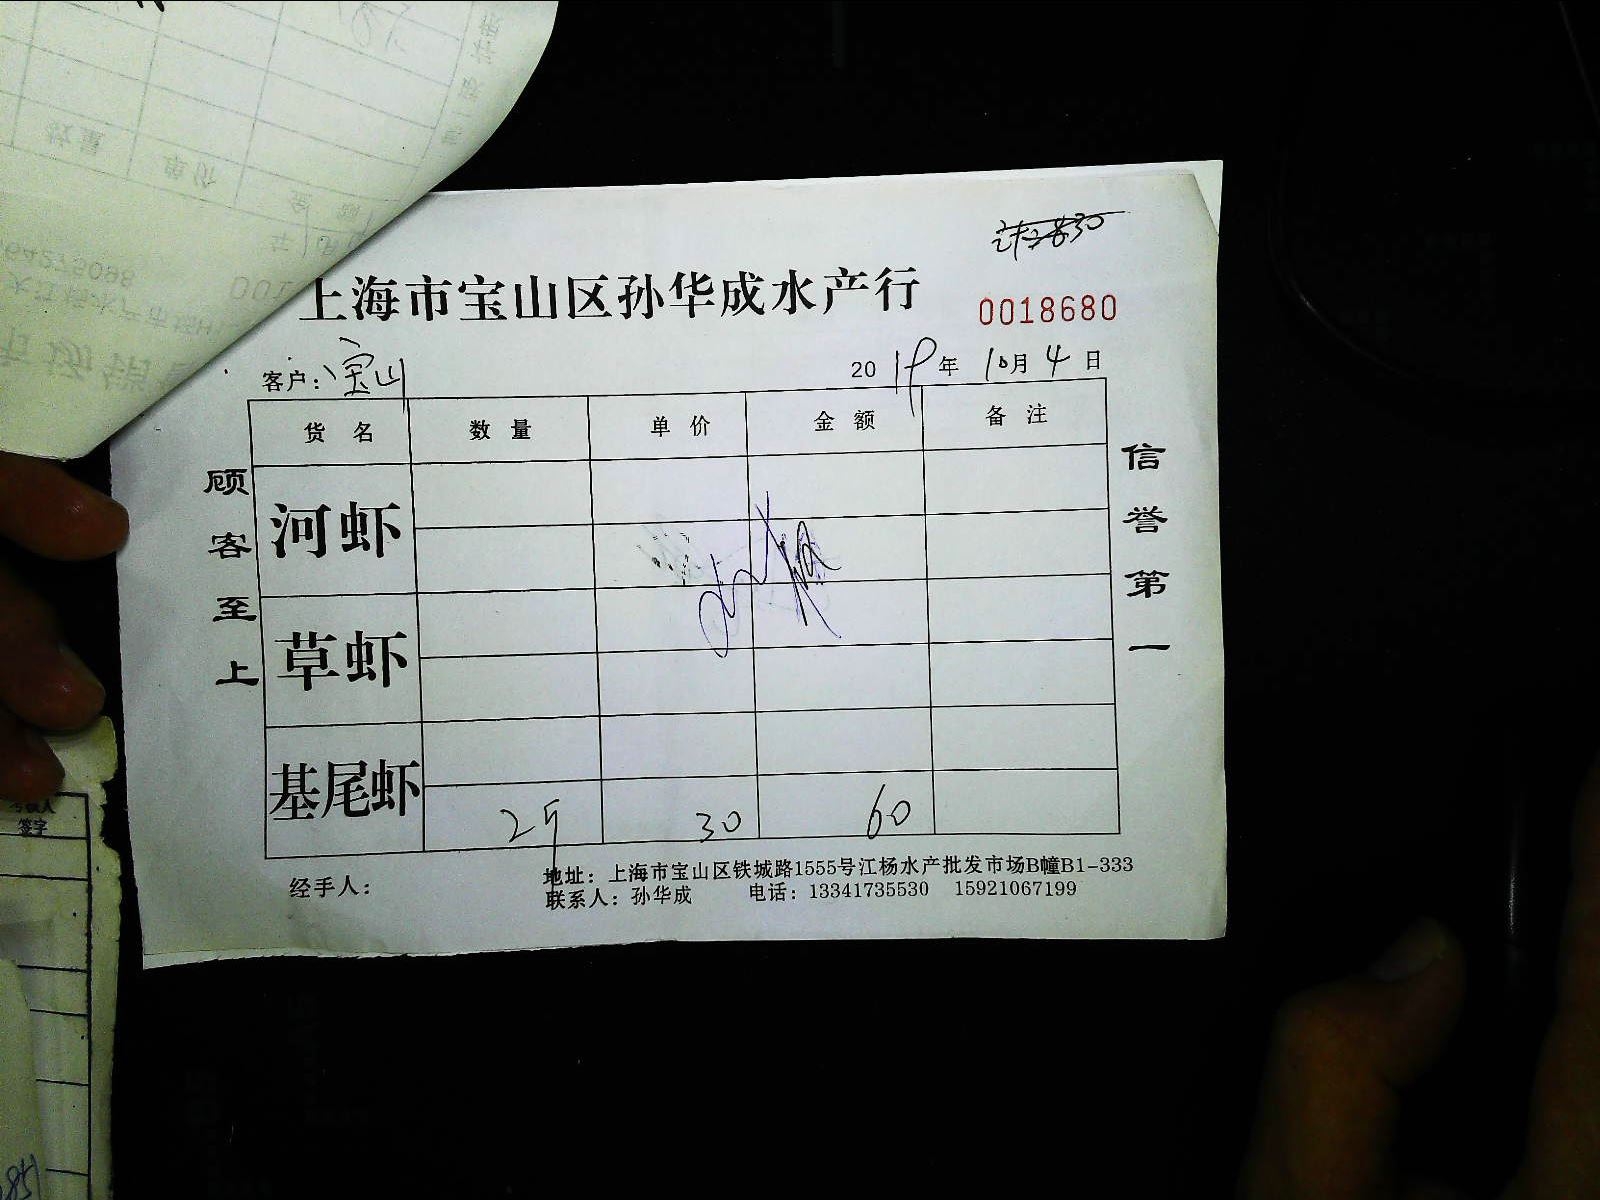 上海市宝山区孙华成水产行
0018680
客户：宝山
2019年 10月 4日
货名 数量 单价 金额 备注
顾客至上
信誉第一
河虾
草虾
基尾虾 2斤 30 60
经手人：
地址：上海市宝山区铁城路1555号江杨水产批发市场B幢B1-333
联系人：孙华成 电话：13341735530 15921067199
签字
数量
单价
金额